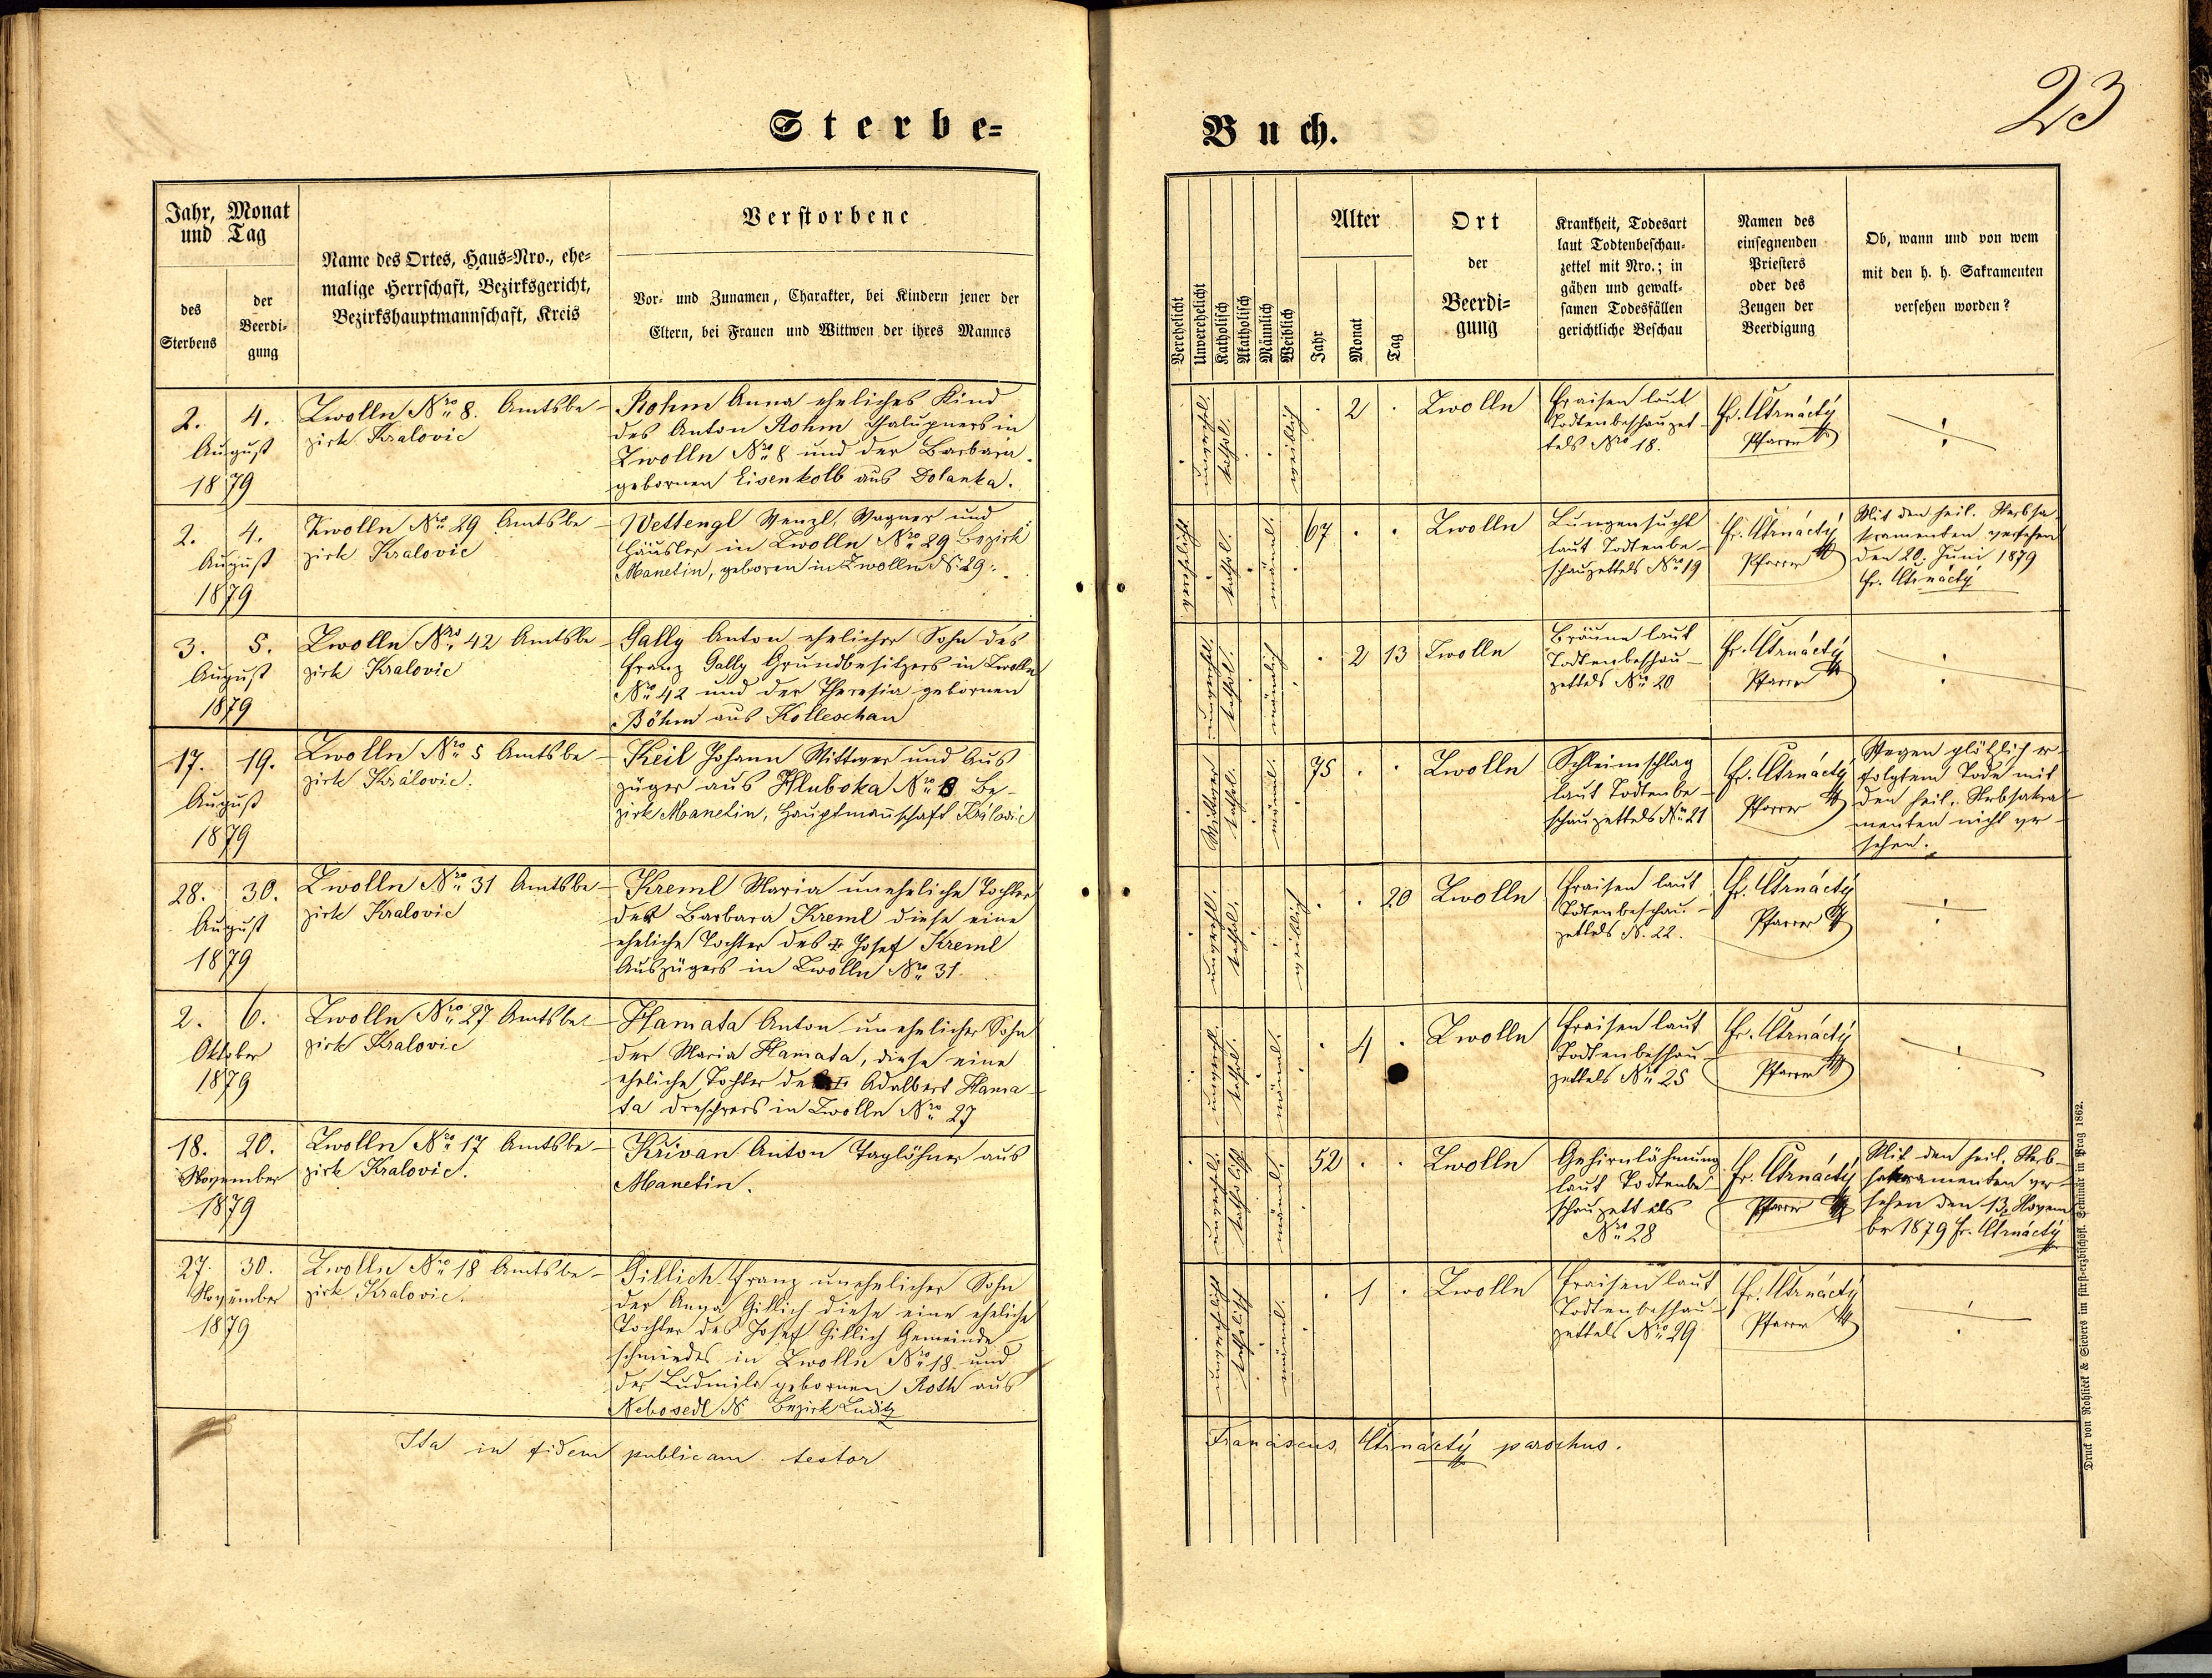 Sterbe=
Buch.
23
Jahr, Monat
und Tag
des
Sterbens
der
Beerdi-
gung
Name des Ortes, Haus=Nro., ehe-
malige Herrschaft, Bezirksgericht,
Bezirkshauptmannschaft, Kreis
Verstorbene
Vor- und Zunamen, Charakter, bei Kindern jener der
Eltern, bei Frauen und Wittwen der ihres Mannes
Verehelicht
Unverehelicht
Katholisch
Akatholisch
Männlich
Weiblich
Alter
Jahr
Monat
Tag
Ort
der
Beerdi-
gung
Krankheit, Todesart
laut Todtenbeschau-
zettel mit Nro.; in
gähen und gewalt-
samen Todesfällen
gerichtliche Beschau
Namen des
einsegnenden
Priesters
oder des
Zeugen der
Beerdigung
Ob, wann und von wem
mit den h. h. Sakramenten
versehen worden?
2. 4.
August
1879
Zwolln Nro 8. Amtsbe-
zirk Kralovic
Rohm Anna eheliches Kind
des Anton Rohm Chalupners in
Zwolln Nro 8 und der Barbara
gebornen Eisenkolb aus Dolanka.
unverehel.
kathol.
weiblich
2
Zwolln
Fraisen laut
Todtenbeschauzet-
tels Nro 18.
Fr. Čtrnáctý
Pfarrer
2. 4.
August
1879
Zwolln Nro 29 Amtsbe-
zirk Kralovic
Wettengl Wenzl, Wagner und
Häusler in Zwolln Nro 29 Bezirk
Manetin, geboren in Zwolln N. 29.
verehelicht
kathol.
männl.
67
Zwolln
Lungensucht
laut Todtenbe-
schauzettels Nro 19
Fr. Čtrnáctý
Pfarrer
Mit den heil. Sterbsa-
kramenten versehen
den 20. Juni 1879
Fr. Čtrnáctý
3. 5.
August
1879
Zwolln Nro 42 Amtsbe-
zirk Kralovic
Gally Anton ehelicher Sohn des
Franz Gally Grundbesitzers in Zwolln
Nro 42 und der Theresia gebornen
Böhm aus Kolleschau
unverehel.
kathol.
männlich
2 13
Zwolln
Bräune laut
Todtenbeschau-
zettels Nro 20
Fr. Čtrnáctý
Pfarrer
17. 19.
August
1879
Zwolln Nro 5 Amtsbe-
zirk Kralovic.
Keil Johann Wittwer und Aus
züger aus Hluboka Nro 8 Be-
zirk Manetin, Hauptmannschaft Kralovic
Wittwer
kathol.
männl.
75
Zwolln
Schleimschlag
laut Todtenbe-
schauzettels Nro 21
Fr. Čtrnáctý
Pfarrer
Wegen plötzlich er-
folgtem Tode mit
den heil. Sterbsakra-
menten nicht ver-
sehen.
28. 30.
August
1879
Zwolln Nro 31 Amtsbe-
zirk Kralovic
Kreml Maria uneheliche Tochter
der Barbara Kreml diese eine
eheliche Tochter des Josef Kreml
Auszügers in Zwolln Nro 31.
unverehl.
kathol.
weiblich
20
Zwolln
Fraisen laut
Todtenbeschau-
zettels N. 22.
Fr. Čtrnáctý
Pfarrer
2. 6.
Oktober
1879
Zwolln Nro 27 Amtsbe-
zirk Kralovic
Hamata Anton unehelicher Sohn
der Maria Hamata, diese eine
eheliche Tochter des Adalbert Hama-
ta Dreschers in Zwolln Nro 27
unverehl.
kathol.
männl.
4
Zwolln
Fraisen laut
Todtenbeschau-
zettels Nro 25
Fr. Čtrnáctý
Pfarrer
18. 20.
November
1879
Zwolln Nro 17 Amtsbe-
zirk Kralovic.
Křivan Anton Taglöhner aus
Manetin.
unverehel.
katholisch
männl.
52
Zwolln
Gehirnlähmung
laut Todtenbe-
schauzettels
Nro 28
Fr. Čtrnáctý
Pfarrer
Mit den heil. Sterb-
sakramenten ver-
sehen den 13. Novem
ber 1879 Fr. Čtrnáctý
27. 30.
November
1879
Zwolln Nro 18 Amtsbe-
zirk Kralovic.
Gillich Franz unehelicher Sohn
der Anna Gillich diese eine eheliche
Tochter des Josef Gillich Gemeinde-
schmiedes in Zwolln Nro 18 und
der Ludmila gebornen Roth aus
Nebosedl N. Bezirk Luditz
unverehelicht
katholisch
männl.
1
Zwolln
Fraisen laut
Todtenbeschau-
zettels Nro 29
Fr. Čtrnáctý
Pfarrer
Ita in fidem publicam testor
Franciscus Čtrnáctý parochus.
Druck von Rohliček & Sievers im fürst-erzbischöfl. Seminär in Prag 1862.